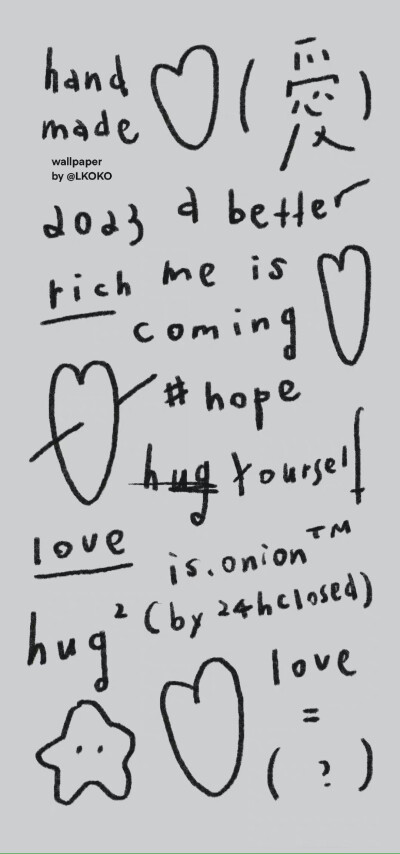 hand
made
(愛)
wallpaper
by @LKOKO
2023 a better
rich me is
coming
# hope
hug yourself
love is.onion™
hug² (by 24hclosed)
love
=
(?)